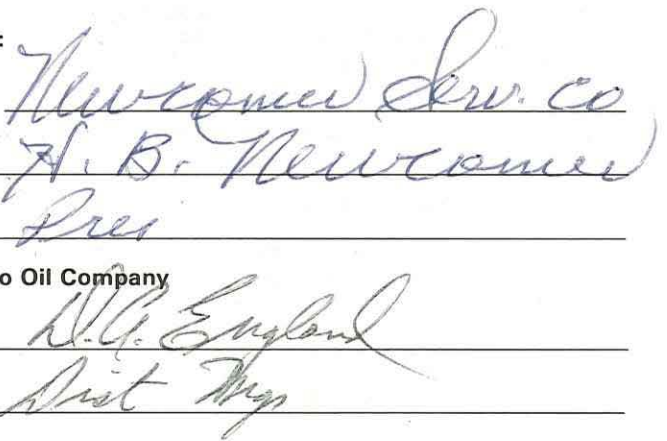 Newcomer Serv. Co
H. B. Newcomer
Pres
o Oil Company
D. A. England
Dist Mgr